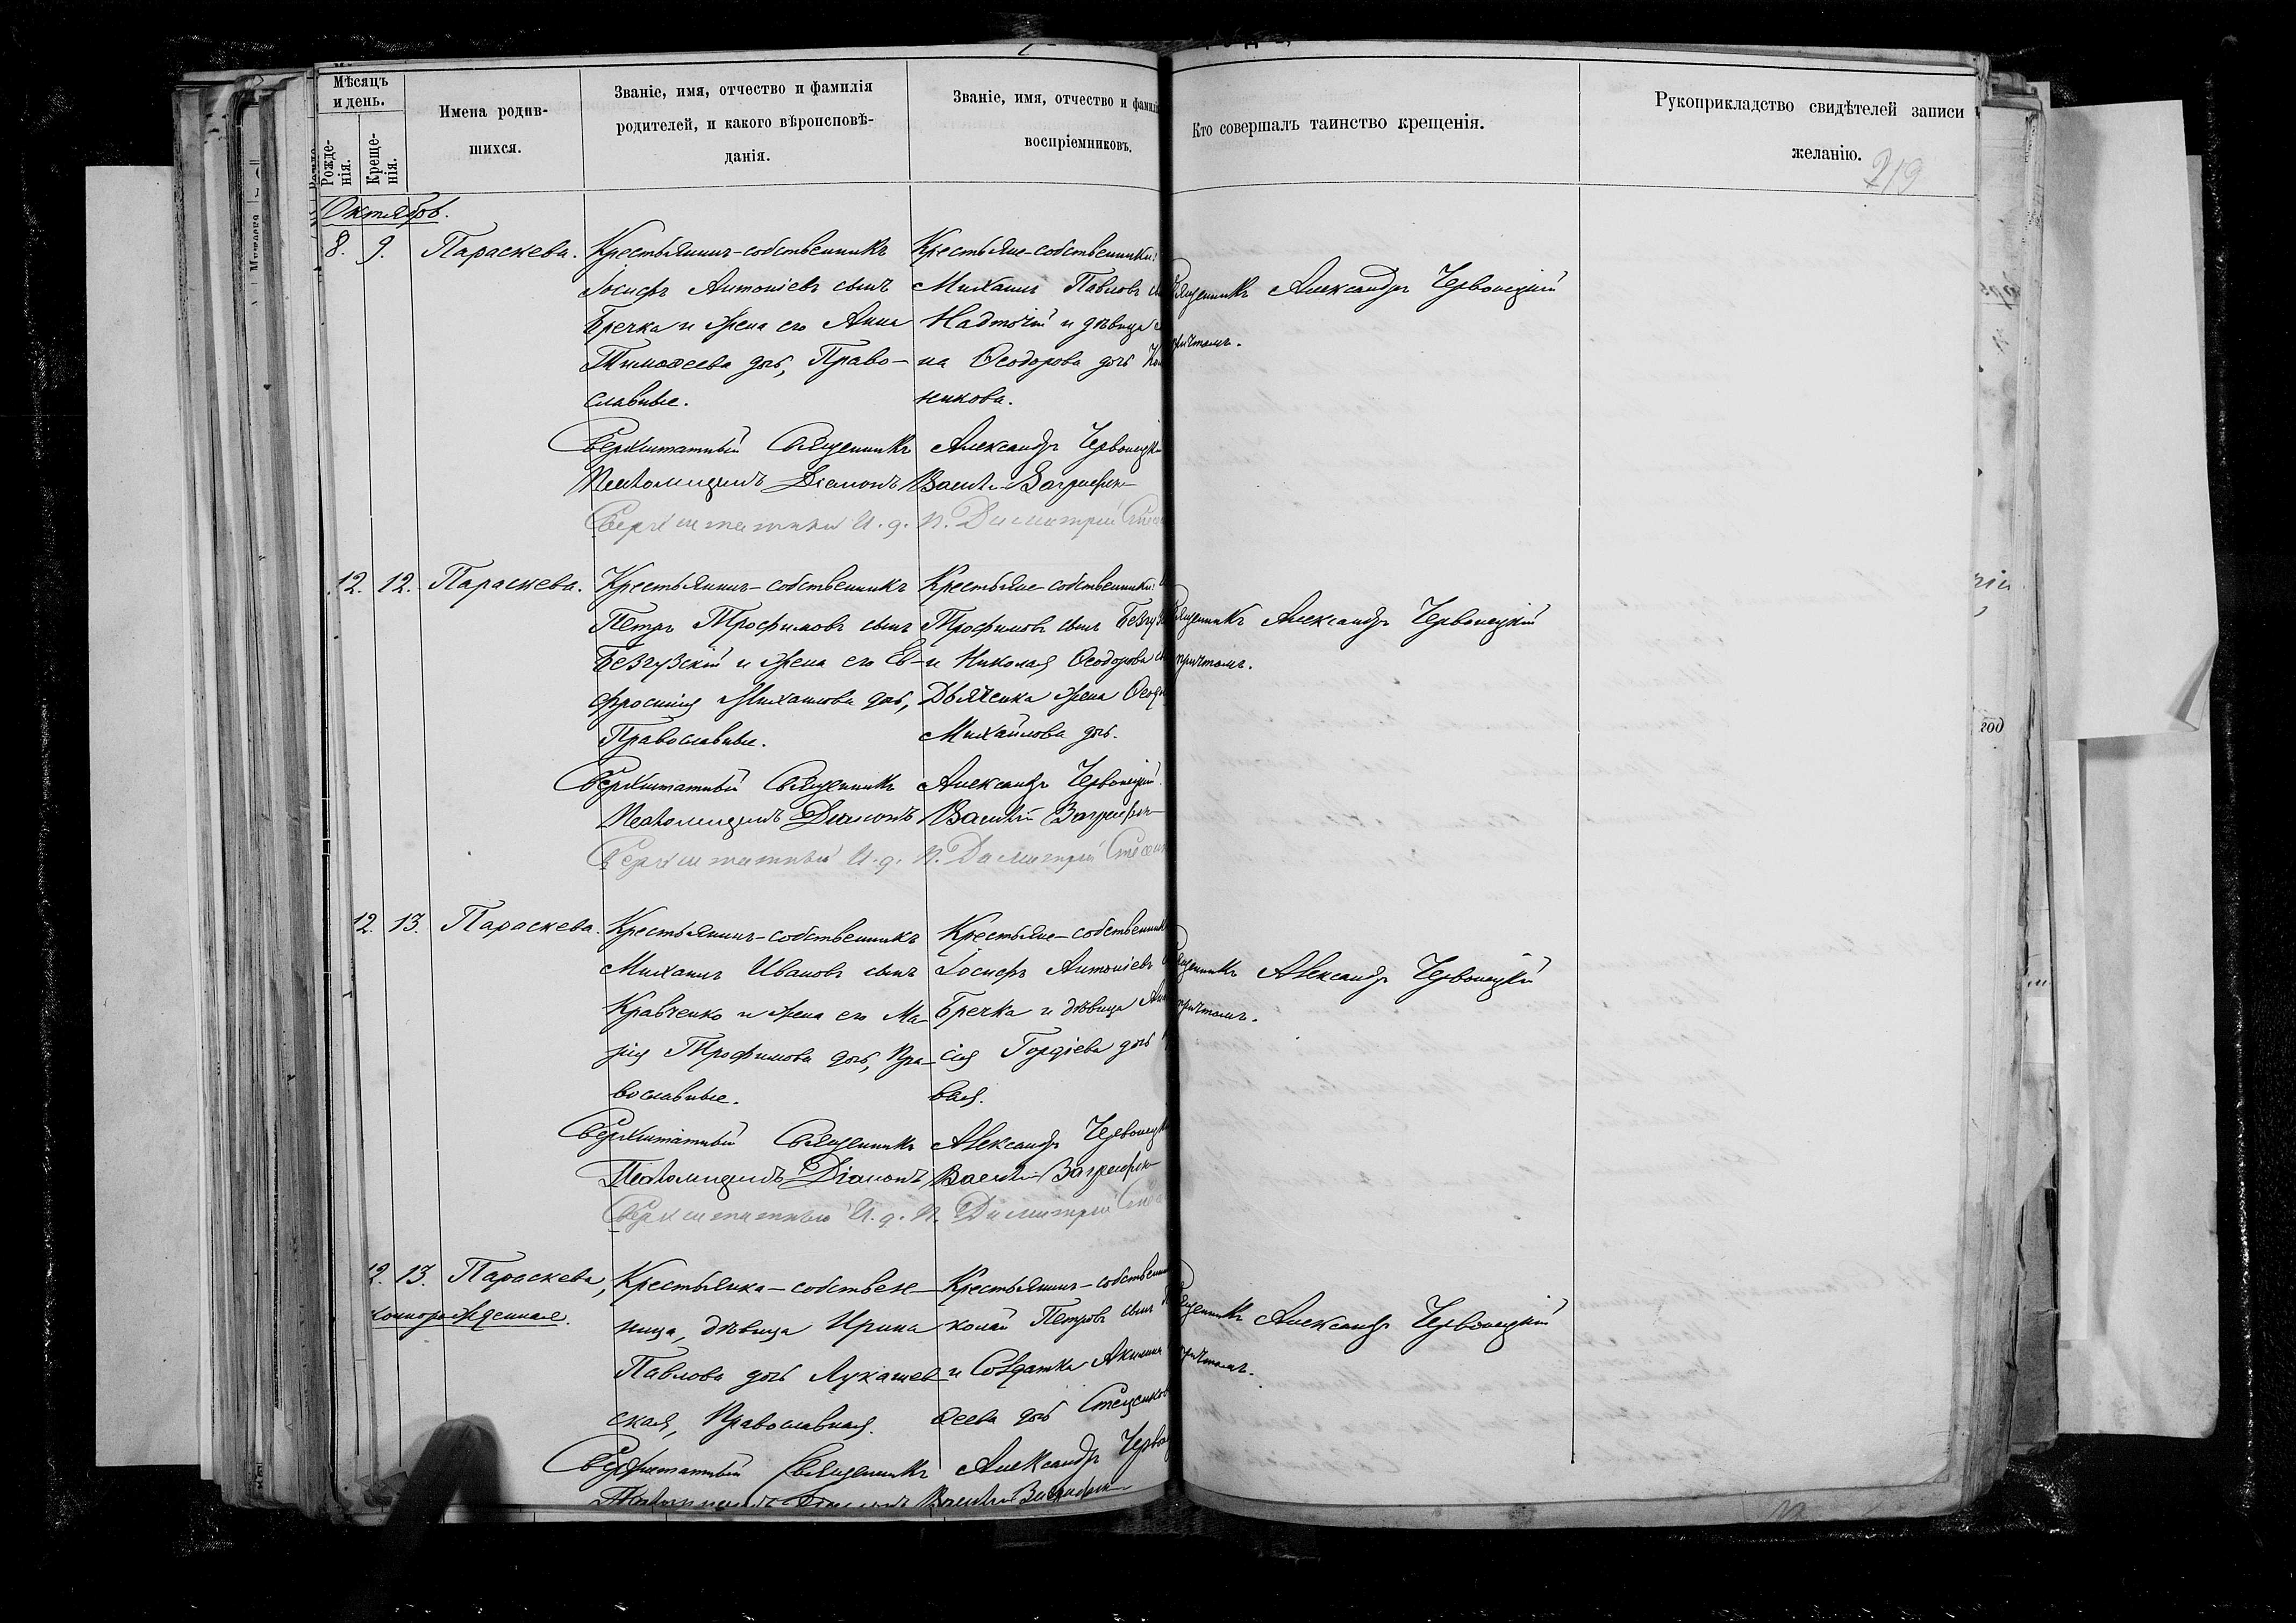 Мѣсяцъ
и день.
Рожде-
нія.
Креще-
нія.
Имена родив-
шихся.
Званіе, имя, отчество и фамилія
родителей, и какого вѣроисповѣ-
данія.
Званіе, имя, отчество и фамилі
воспріемниковъ.
Кто совершалъ таинство крещенія.
Рукоприкладство свидѣтелей записи
желанію.
219
Октябрь.
8. 9. Параскева.
Крестьянинъ-собственникъ
Іосифъ Антоніевъ сынъ
Бречка и жена его Анна
Тимоѳеева дочь, Право-
славные.
Крестьяне-собственники:
Михаилъ Павловъ
Надточій и дѣвица
на Ѳеодорова дочь
никова.
Священникъ Александръ Червонецкій
причтомъ.
Сверхштатный Священникъ Александръ Червонецкі
Псаломщикъ Діаконъ Василій
Сверхштатный И. д. п. Димитрій
12. 12. Параскева.
Крестьянинъ-собственникъ
Петръ Трофимовъ сынъ
Безгузскій и жена его Ев-
фросинія Михаилова дочь,
Православные.
Крестьяне-собственники:
Трофимовъ сынъ Безгуз
и Николая Ѳеодорова
Дьяченка жена Ѳеод
Михайлова дочь.
Священникъ Александръ Червонецкій
причтомъ.
Сверхштатный Священникъ Александръ Червонецкій.
Псаломщикъ Діаконъ Василій
Сверхштатный И. д. п. Димитрій
12. 13. Параскева.
Крестьянинъ-собственникъ
Михаилъ Ивановъ сынъ
Кравченко и жена его Ма-
рія Трофимова дочь, Пра-
вославные.
Крестьяне-собственник
Іосифъ Антоніевъ
Бречка и дѣвица
сія Гордіева дочь
вая.
Священникъ Александръ Червонецкій
причтомъ.
Сверхштатный Священникъ Александръ Червонецк
Псаломщикъ Діаконъ Василій
Сверхштатный И. д. п. Димитрій
2. 13. Параскева,
коннорожденная.
Крестьянка-собствен-
ница, дѣвица Ирина
Павлова дочь Лукашев-
ская, Православная.
Крестьянинъ-собственн
колай Петровъ сынъ
и Солдатка Акилина
ѳеева дочь
Священникъ Александръ Червонецкій
причтомъ.
Сверхштатный Священникъ Александръ Черво
Псаломщикъ Діаконъ Василій